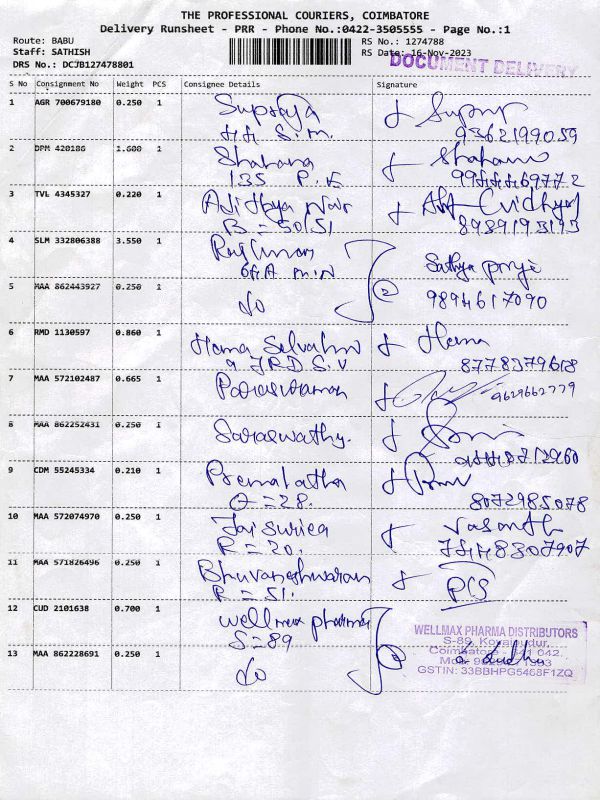 THE PROFESSIONAL COURIERS, COIMBATORE
Delivery Runsheet - PRR - Phone No.:0422-3505555 - Page No.:1
Route: BABU
Staff: SATHISH
DRS No.: DCJB127478801
RS No.: 1274788
RS Date: 16-Nov-2023
DOCUMENT DELIVERY
S No Consignment No Weight PCS Consignee Details Signature
1 AGR 700679180 0.250 1 Supraja
S.M. 9362199059
2 DPM 420186 1.600 1 Shahana
135 P.E
3 TVL 4345327 0.220 1 Adithya
B = 50/51 8939193193
4 SLM 332806388 3.550 1 Rajkumar Sathya priya
5 MAA 862443927 0.250 1 Do 2 9894617090
6 RMD 1130597 0.860 1 Hema Selvahn Hema
9 JRD S.V 8778379618
7 MAA 572102487 0.665 1 9629662779
8 MAA 862252431 0.250 1 Saraswathy.
9 CDM 55245334 0.210 1 Premalatha
O = 28. 8072985078
10 MAA 572074970 0.250 1 Jaisurica Vasanth
R = 20.
11 MAA 571826496 0.250 1 Bhuvaneshwaran PCS
R = 51.
12 CUD 2101638 0.700 1 Wellmax pharma
S = 89
13 MAA 862228691 0.250 1 Do 2
WELLMAX PHARMA DISTRIBUTORS
S-89, Kovaipudur,
Coimbatore - 641 042.
GSTIN: 33BBHPG5468F1ZQ